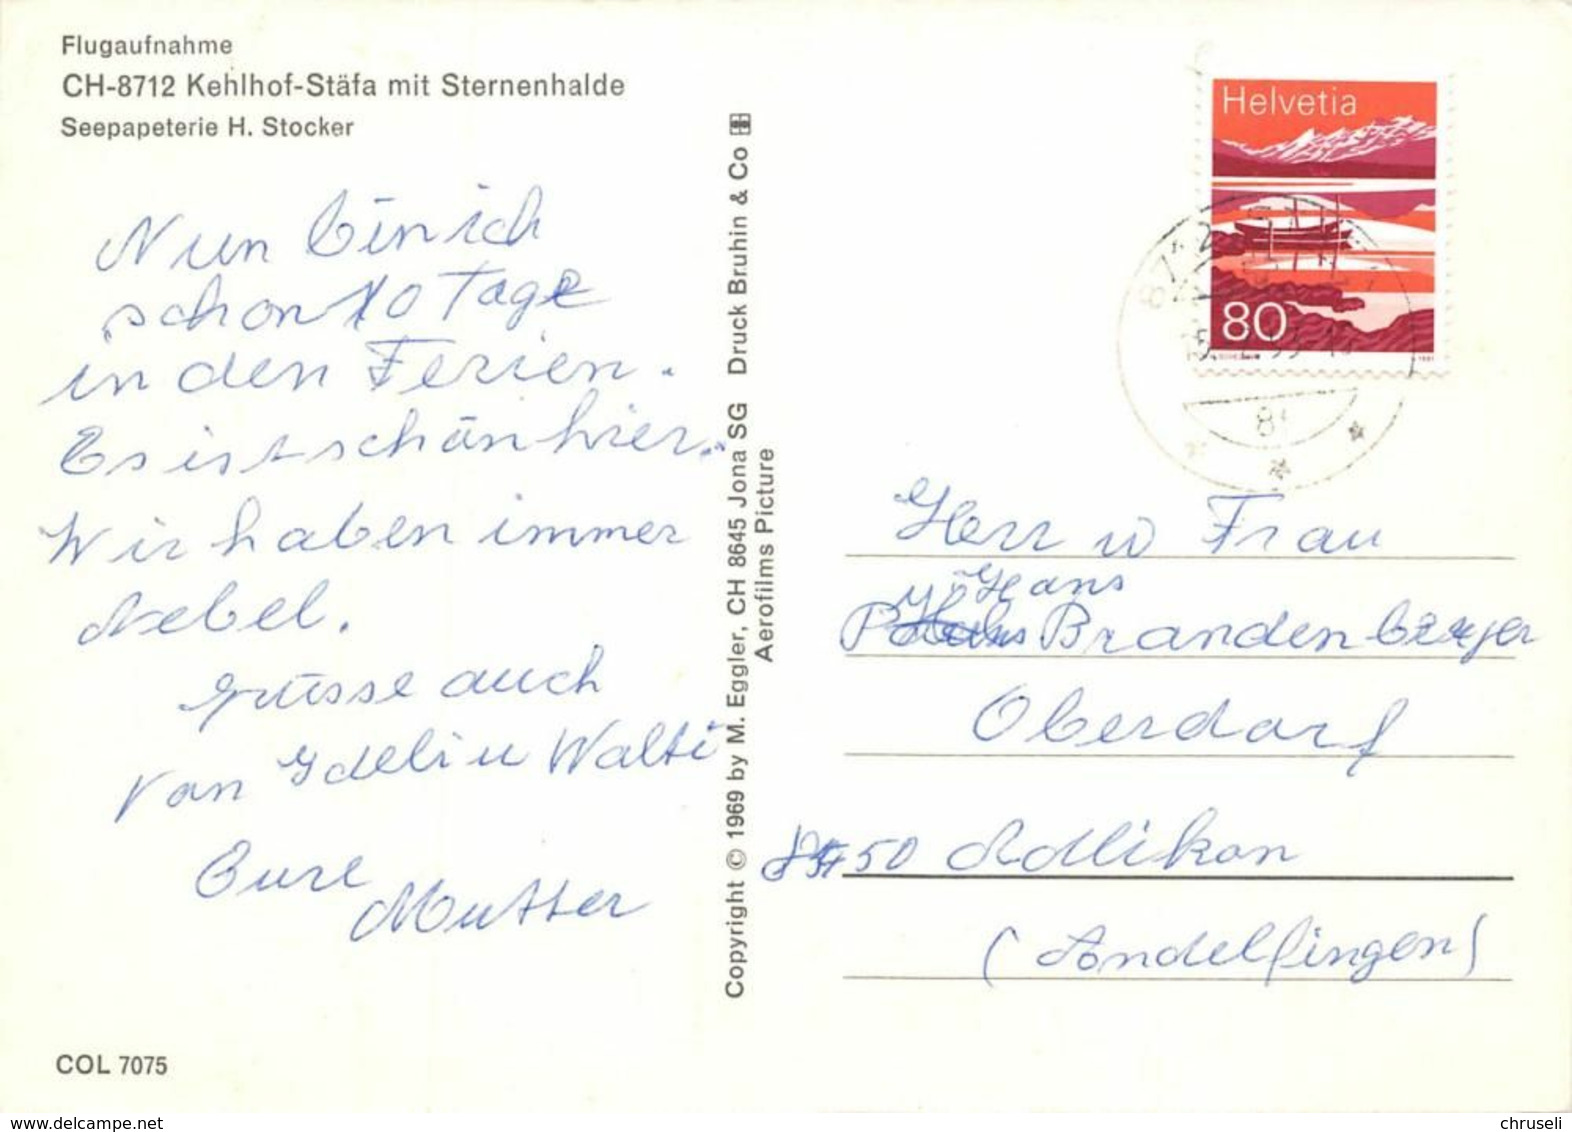 Flugaufnahme
CH-8712 Kehlhof-Stäfa mit Sternenhalde
Seepapeterie H. Stocker
Nun bin ich
schon 10 Tage
in den Ferien.
Es ist schön hier.
Wir haben immer
Nebel.
Grüsse auch
von Ideli u Walti
Eure
Mutter
COL 7075
Copyright © 1969 by M. Eggler, CH 8645 Jona SG Druck Bruhin & Co
Aerofilms Picture
Helvetia
80
Herr u Frau
Hans
Brandenberger
Oberdorf
8450 Adlikon
(Andelfingen)
www.delcampe.net
chruseli